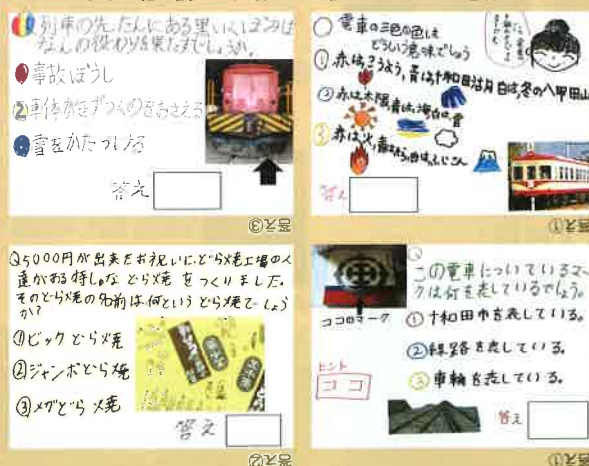 列車の先たんにある黒いくぼみは
なんの役わりを果たすでしょうか。
①事故ぼうし
②車体がきずつくのをおさえる
③雪をかたづける
答え
答え③
電車の三色の色は
どういう意味でしょう
①赤はこうよう、青は十和田湖、白は冬の八甲田山
②赤は太陽、青は海、白は雲
③赤は火、青は
答え
答え①
Q5000円が出来をお祝いにどら焼工場の人
達がある特しゅな どら焼 をつくりました。
そのどら焼の名前は何という どら焼でしょう
か?
①ビックどら焼
②ジャンボどら焼
③メガどら焼
答え
答え②
Q
この電車についているマー
クは何を表しているでしょう。
ココのマーク
①十和田市を表している。
②線路を表している。
③車輪を表している。
ヒント
ココ
答え
答え①